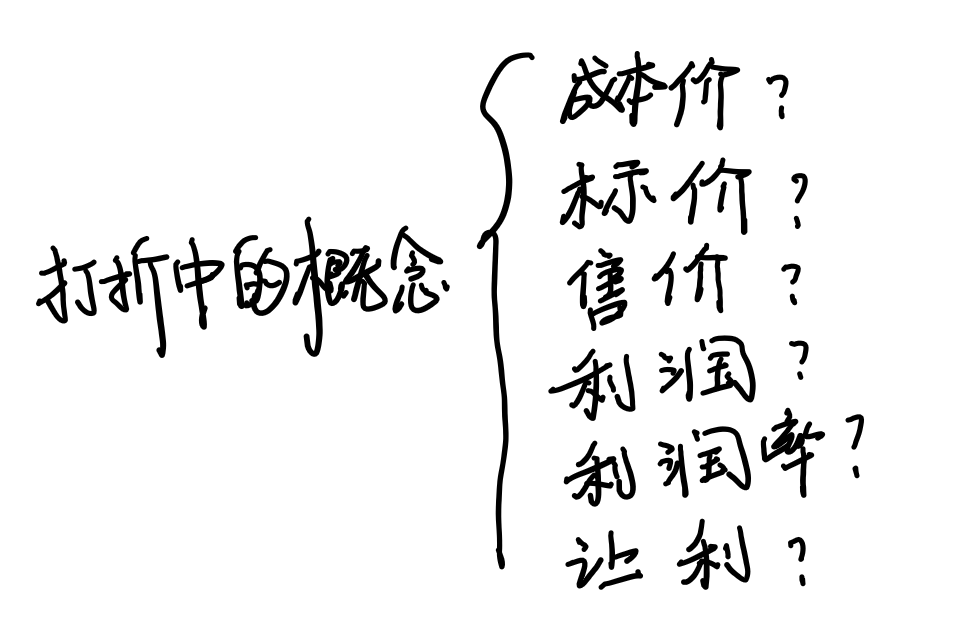 打折中的概念
成本价?
标价?
售价?
利润?
利润率?
让利?